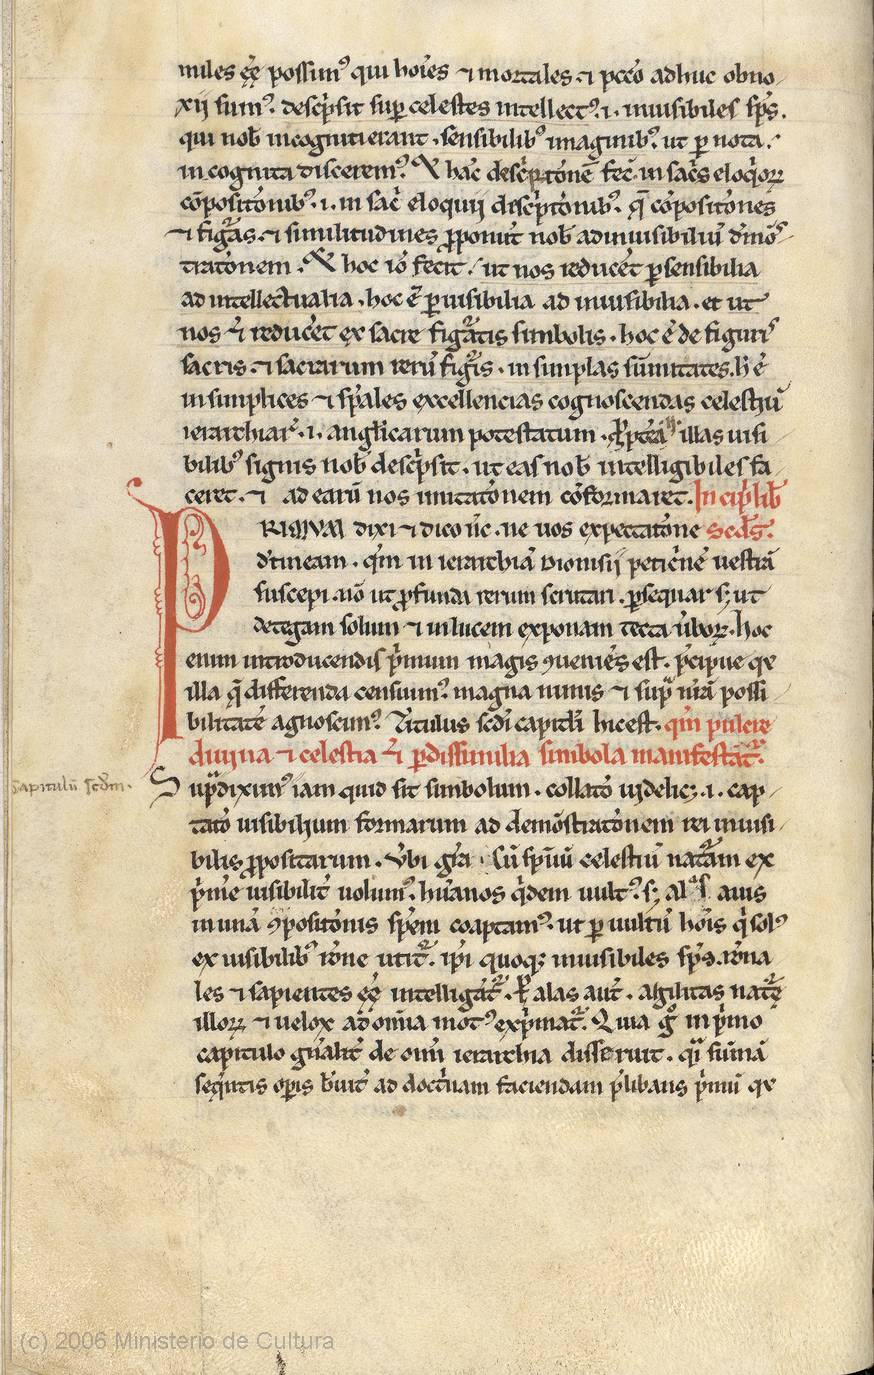 miles eē possum᷒ qui hoīes ⁊ mortales ⁊ pctō adhuc obno
xij sum᷒. descͥpsit suꝑ celestes intellect᷒ .i. inuisibiles sp̄s.
qui nob̄ incogniti erant, sensibilib᷒ imaginib᷒. ut ꝑ nota
incognita discerem᷒. ⁊ hāc descͥptōnē fec̄ in sac̄s eloq̄oꝝ
cōpositōnib᷒ .i. in sac̄ eloquij descͥptōnib᷒. q̄ cōpositōnes
⁊ figᷓas ⁊ similitudines ꝓponūt nob̄ ad inuisibiliū dem̄os
tratōnem. ⁊ hoc iō fecit. ut nos reducēt ꝑ sensibilia
ad intellectualia. hoc ē ꝑ uisibilia ad inuisibilia. et ut
nos reducēt ex sacre figᷓatis simbolis. hoc ē de figuris
sacris ⁊ sacrarum rerū figᷓis. in simplas sūmitates. h̄ ē
in simplices ⁊ sp̄ales excellencias cognoscendas celestiū
ierarchiar᷒ .i. anglicarum potestatum. illas uisi
bilib᷒ signis nob̄ descͥpsit. ut eas nob̄ intelligibiles fa
ceret. ⁊ ad earū nos imitatōnem cōformaret. Incip̄ lib̄
PRIMVM dixi ⁊ dico nc̄. ne uos expectatōne scds̄.
dͥtineam. qm̄ in ierarchiā dionisij peticōnē uestrā
suscepi. nō ut ꝓfunda rerum scrutari. ꝑsequar sꝫ ut
detegam solum ⁊ in lucem exponam tecta ūboꝝ. hoc
enim introducendis pͥmum magis ꝯueniēs est. pͥcipue qꝛ
illa q̄ differenda censuim᷒. magna nimis ⁊ supᷓ nrā possi
bilitatē agnoscim᷒. Titulus scdͥ capitlͥ hic est. qm̄ pulcre
diuina ⁊ celestia ꝑ dissimilia simbola manifestāt᷒.
Capitulū scdm.
Supᷓ diximus iam quid sit simbolum. collatō uidelicꝫ .i. cap
tatō uisibilium formarum ad demōstratōnem rei inuisi
bilis ꝓpositarum. Vbi grā. Cū sp̄uū celestiū natᷓam ex
pͥm̄e uisibilit̄ uolum᷒. hūanos q̄dem uult᷒. sꝫ alas auis
in unā ꝯpositōnis spēm coaptam᷒. ut ꝑ uultū hoīs qͥ sol᷒
ex uisibilib᷒ rōne utit᷒. ip̄i quoqꝫ inuisibiles sp̄s. rōna
les ⁊ sapientes eē intelligāt᷒. ꝑ alas aut̄. agilitas natᷓe
illoꝝ ⁊ uelox ad omīa mot᷒ expͥmat᷒. Quia gͦ in pͥmo
capitulo gn̄alit̄ de omī ierarchia disseruit. qͣi sūmā
seqͥntis opͥis bͥuit̄ ad doctͥnam faciendam pͥlibans pͥmū qꝛ
(c) 2006 Ministerio de Cultura